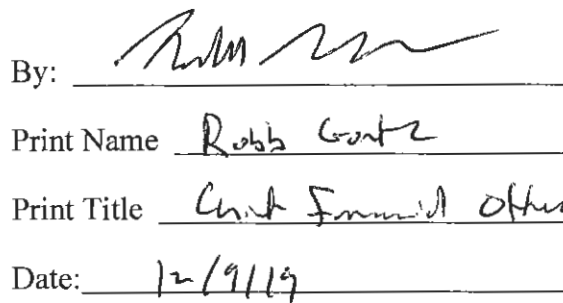 By:
Print Name Robb
Print Title Chief Financial Officer
Date: 12/9/19